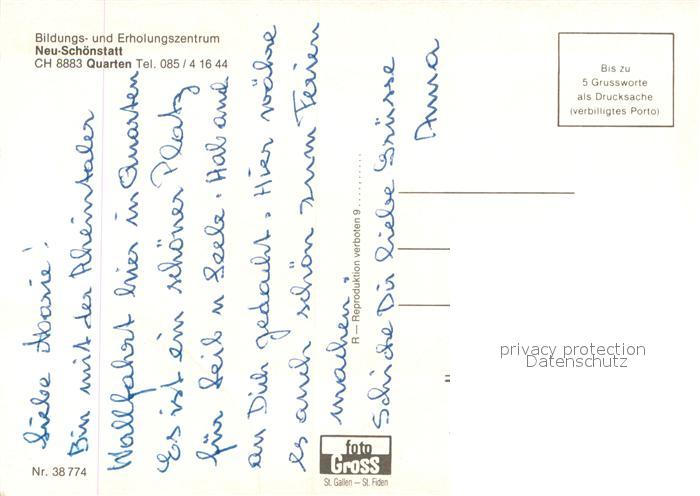 Bildungs- und Erholungszentrum
Neu-Schönstatt
CH 8883 Quarten Tel. 085 / 4 16 44
Liebe Marie!
Bin mit der Rheintaler
Wallfahrt hier in Quarten
Es ist ein schöner Platz
für Leib u Seele. Hab and
an Dich gedacht. Hier währe
es auch schön zum Ferien
machen.
Schicke Dir liebe Grüsse
Anna
R — Reproduktion verboten 9 ..........
Bis zu
5 Grussworte
als Drucksache
(verbilligtes Porto)
privacy protection
Datenschutz
Nr. 38 774
foto
Gross
St. Gallen — St. Fiden